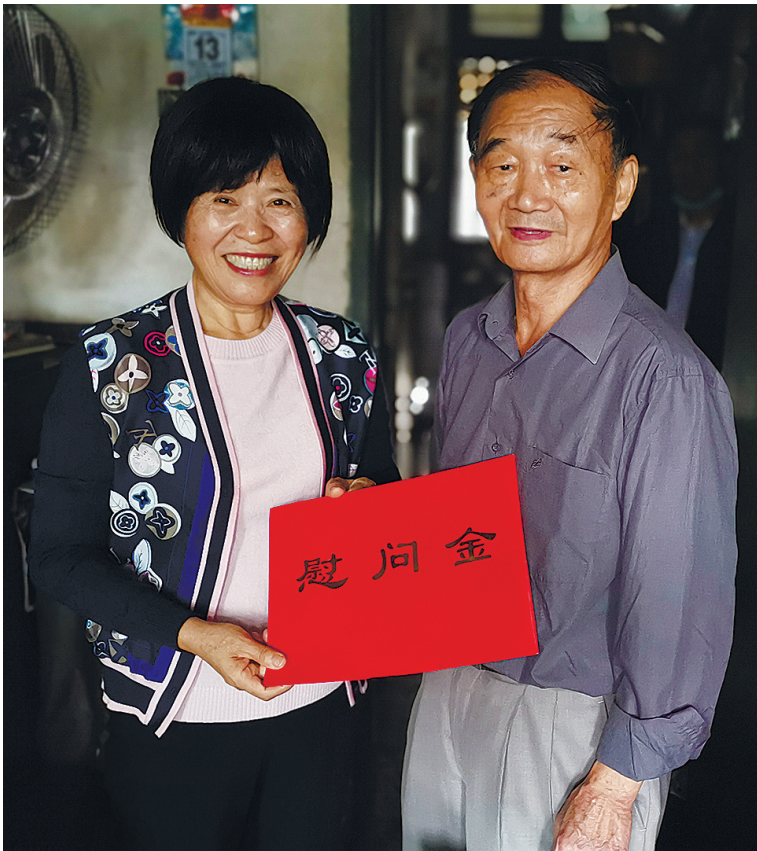 13
慰问金